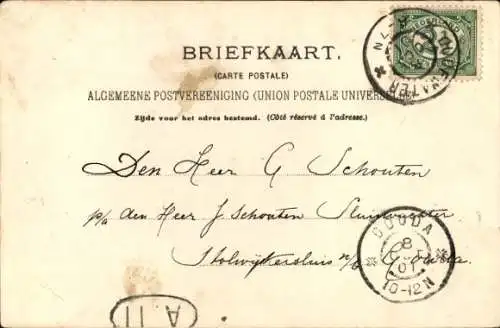 BRIEFKAART.
(CARTE POSTALE)
ALGEMEENE POSTVEREENIGING (UNION POSTALE UNIVERSELLE)
Zijde voor het adres bestemd. (Côté réservé à l'adresse.)
Den Heer G Schouten
p/a den Heer J. Schouten Sluiswachter
Stolwijkersluis n/b Gouda.
NEDERLAND
OUDEWATER
GOUDA
8
01
10-12N
A.11